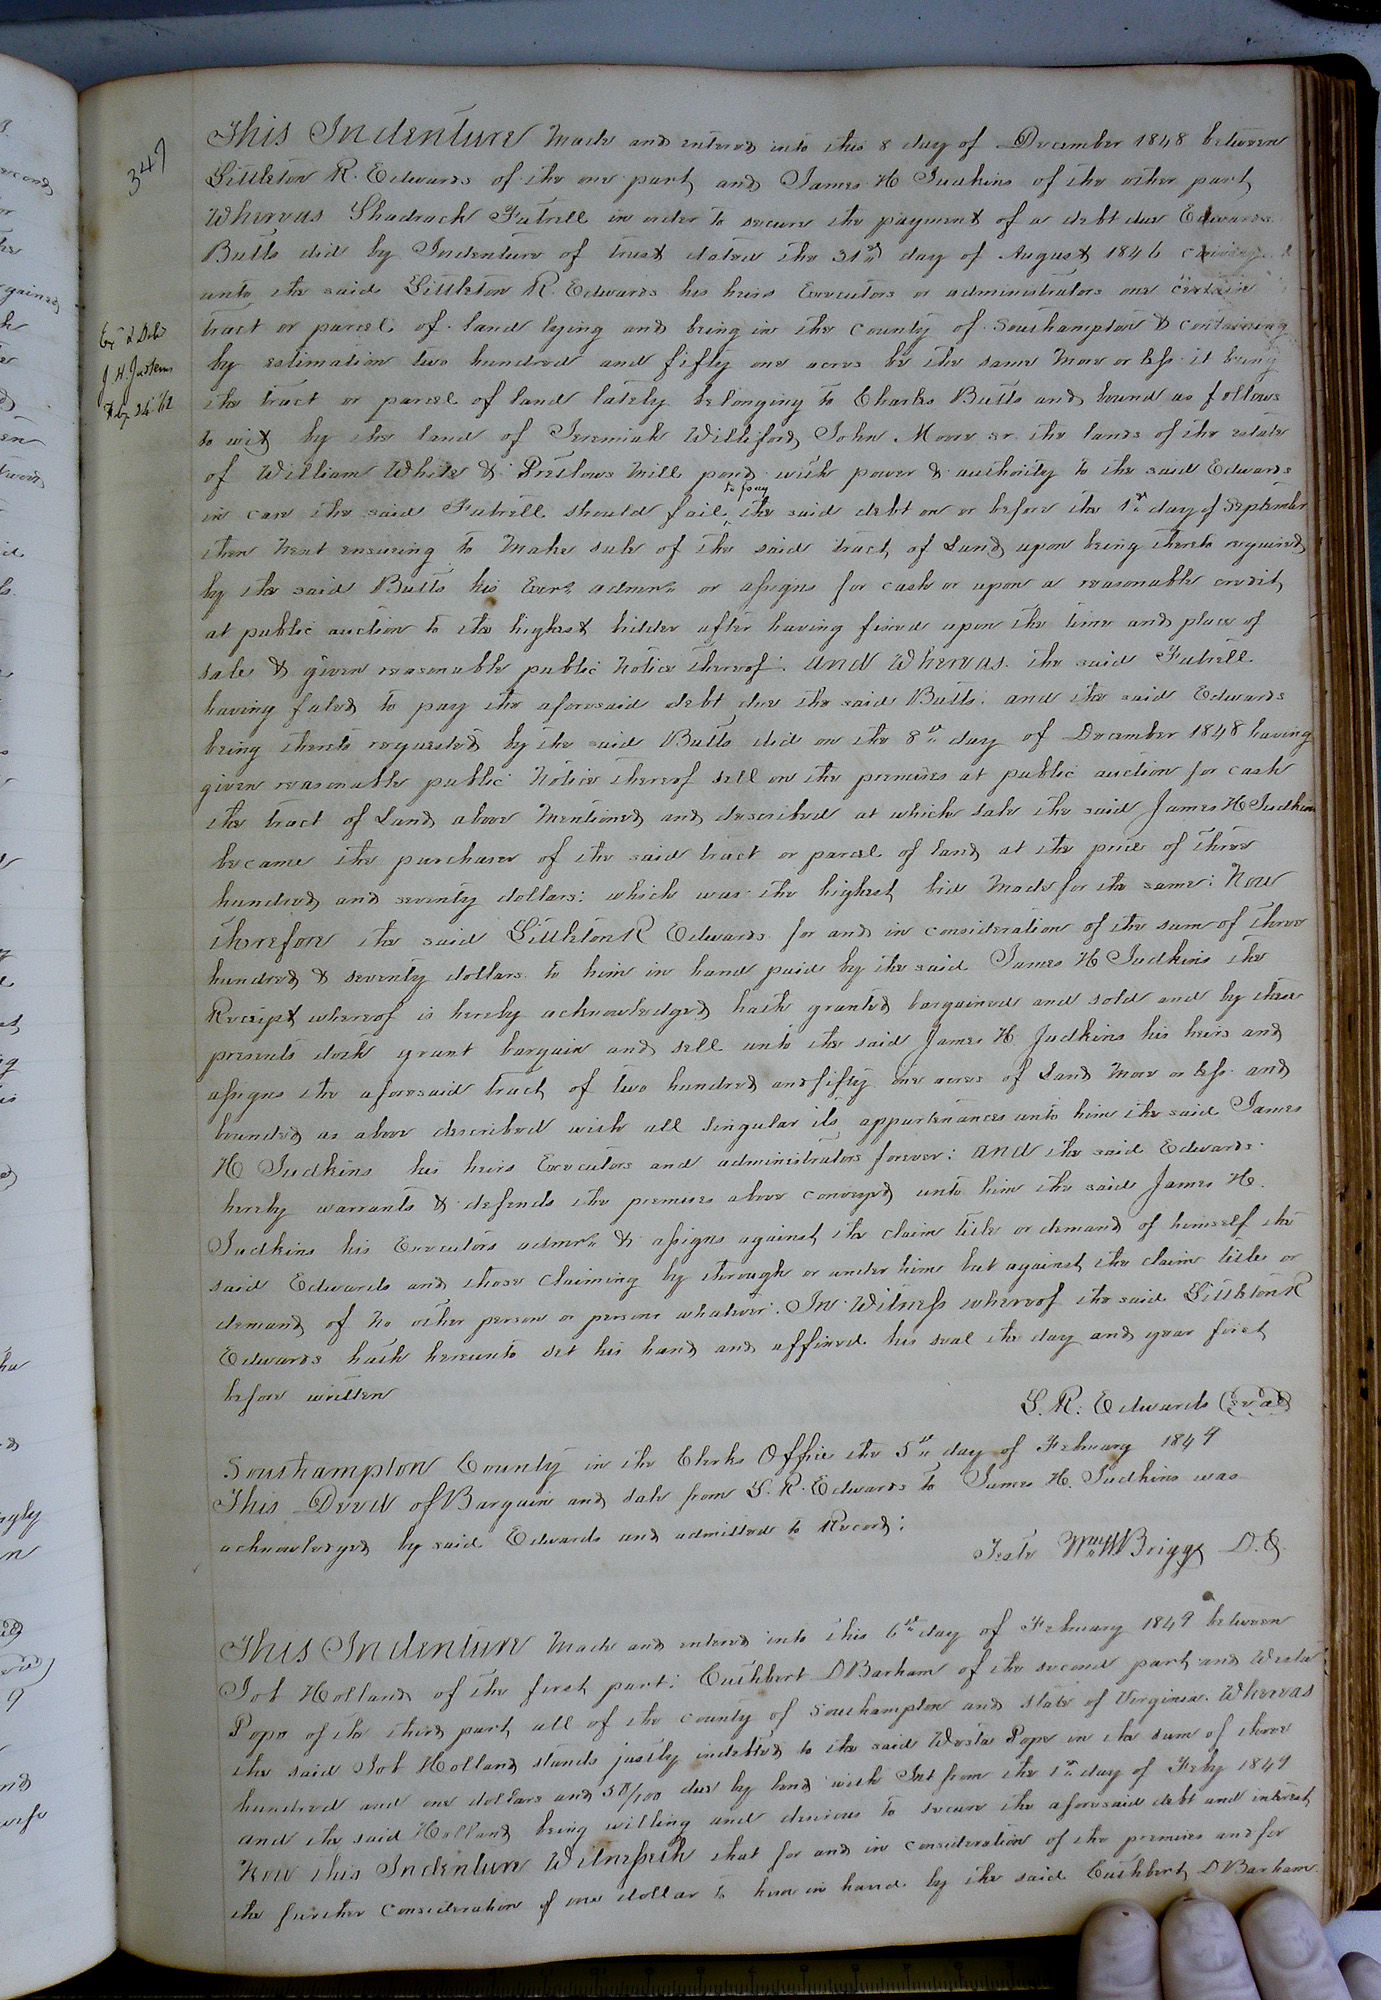 349
This Indenture Made and entered into this 8 day of December 1848 between
Littleton R. Edwards of the one part and James H Judkins of the other part
Whereas Shadrach Futrell in order to secure the payment of a debt due Edwards
Butts did by Indenture of trust dated the 31st day of August 1846
unto the said Littleton R. Edwards his heirs Executors or administrators one certain
tract or parcel of land lying and being in the county of Southampton & containing
by estimation two hundred and fifty one acres be the same More or less it being
the tract or parcel of land lately belonging to Charles Butts and bound as follows
to wit by the land of Jeremiah Williford, John Moore sr. the lands of the estate
of William White & Pretlows Mill pond with power & authority to the said Edwards
in case the said Futrell should fail to pay the said debt on or before the 1st day of September
then Next ensuing to Make sale of the said tract of Land upon being thereto required
by the said Butts his Exors admrs or assigns for cash or upon a reasonable credit
at public auction to the highest bidder after having fixed upon the time and place of
sale & given reasonable public Notice thereof. And Whereas the said Futrell
having faled to pay the aforesaid debt due the said Butts. and the said Edwards
being thereto requested by the said Butts did on the 8th day of December 1848 having
given reasonable public Notice thereof sell on the premises at public auction for cash
the tract of Land above Mentioned and described at which sale the said James H Judkins
became the purchaser of the said tract or parcel of land at the price of three
hundred and seventy dollars: which was the highest bid Made for the same: Now
therefore the said Littleton R Edwards for and in consideration of the sum of three
hundred & seventy dollars to him in hand paid by the said James H Judkins the
Receipt whereof is hereby acknowledged hath granted bargained and sold and by these
presents doth grant bargain and sell unto the said James H Judkins his heirs and
assigns the aforesaid tract of two hundred and fifty one acres of Land More or less and
bounded as above described with all singular its appurtenances unto him the said James
H Judkins his heirs Executors and administrators forever: And the said Edwards
hereby warrants & defends the premises above conveyed unto him the said James H.
Judkins his Executors admrs & assigns against the claim title or demand of himself the
said Edwards and those claiming by through or under him but against the claim title or
demand of No other person or persons whatever. In Witness whereof the said Littleton R
Edwards hath hereunto set his hand and affixed his seal the day and year first
before written
L. R. Edwards (Seal)
Southampton County in the Clerks Office the 5th day of February 1849
This Deed of Bargain and sale from L. R. Edwards to James H. Judkins was
acknowledged by said Edwards and admitted to Record:
Teste Wm W Briggs D.C.
This Indenture Made and entered into this 6th day of February 1849 between
Job Holland of the first part: Cuthbert D Barham of the second part and
Pope of the third part all of the county of Southampton and state of Virginia. Whereas
the said Job Holland stands justly indebted to the said Pope in the sum of three
hundred and one dollars and 50/100 due by bond with Int from the 1st day of Feby 1849
and the said Holland being willing and desirous to secure the aforesaid debt and interest
Now this Indenture Witnesseth that for and in consideration of the premises and for
the further consideration of one dollar to him in hand by the said Cuthbert D Barham